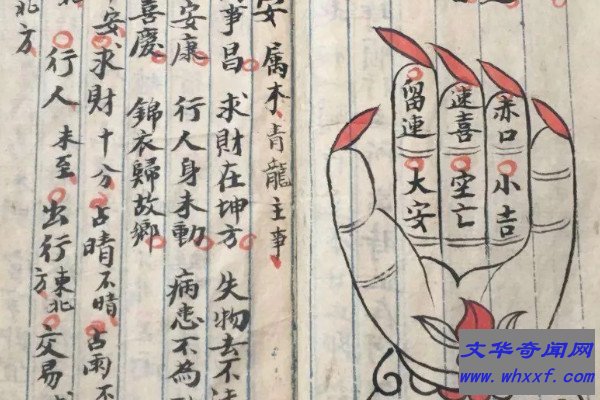 安 属木 青龍主事
事昌 求財在坤方 失物去不
安康 行人身未動 病患不為
喜慶 錦衣歸故鄉
安 求財十分 占晴不晴 占雨不
行人 未至 出行東北方 交易
北方
留連
大安
速喜
空亡
赤口
小吉
文华奇闻网
www.whxxf.com